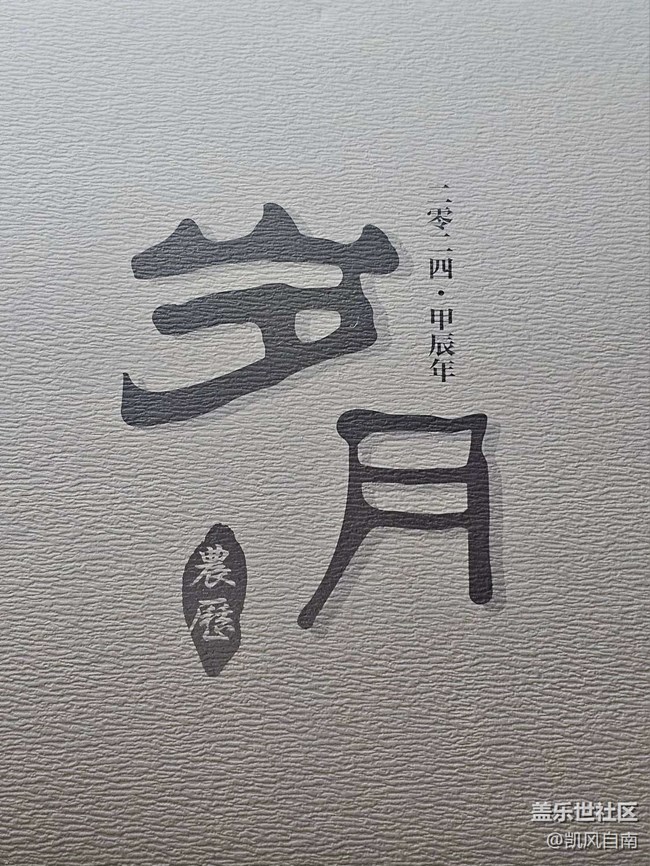 二零二四·甲辰年
岁月
農歷
盖乐世社区
@凯风自南